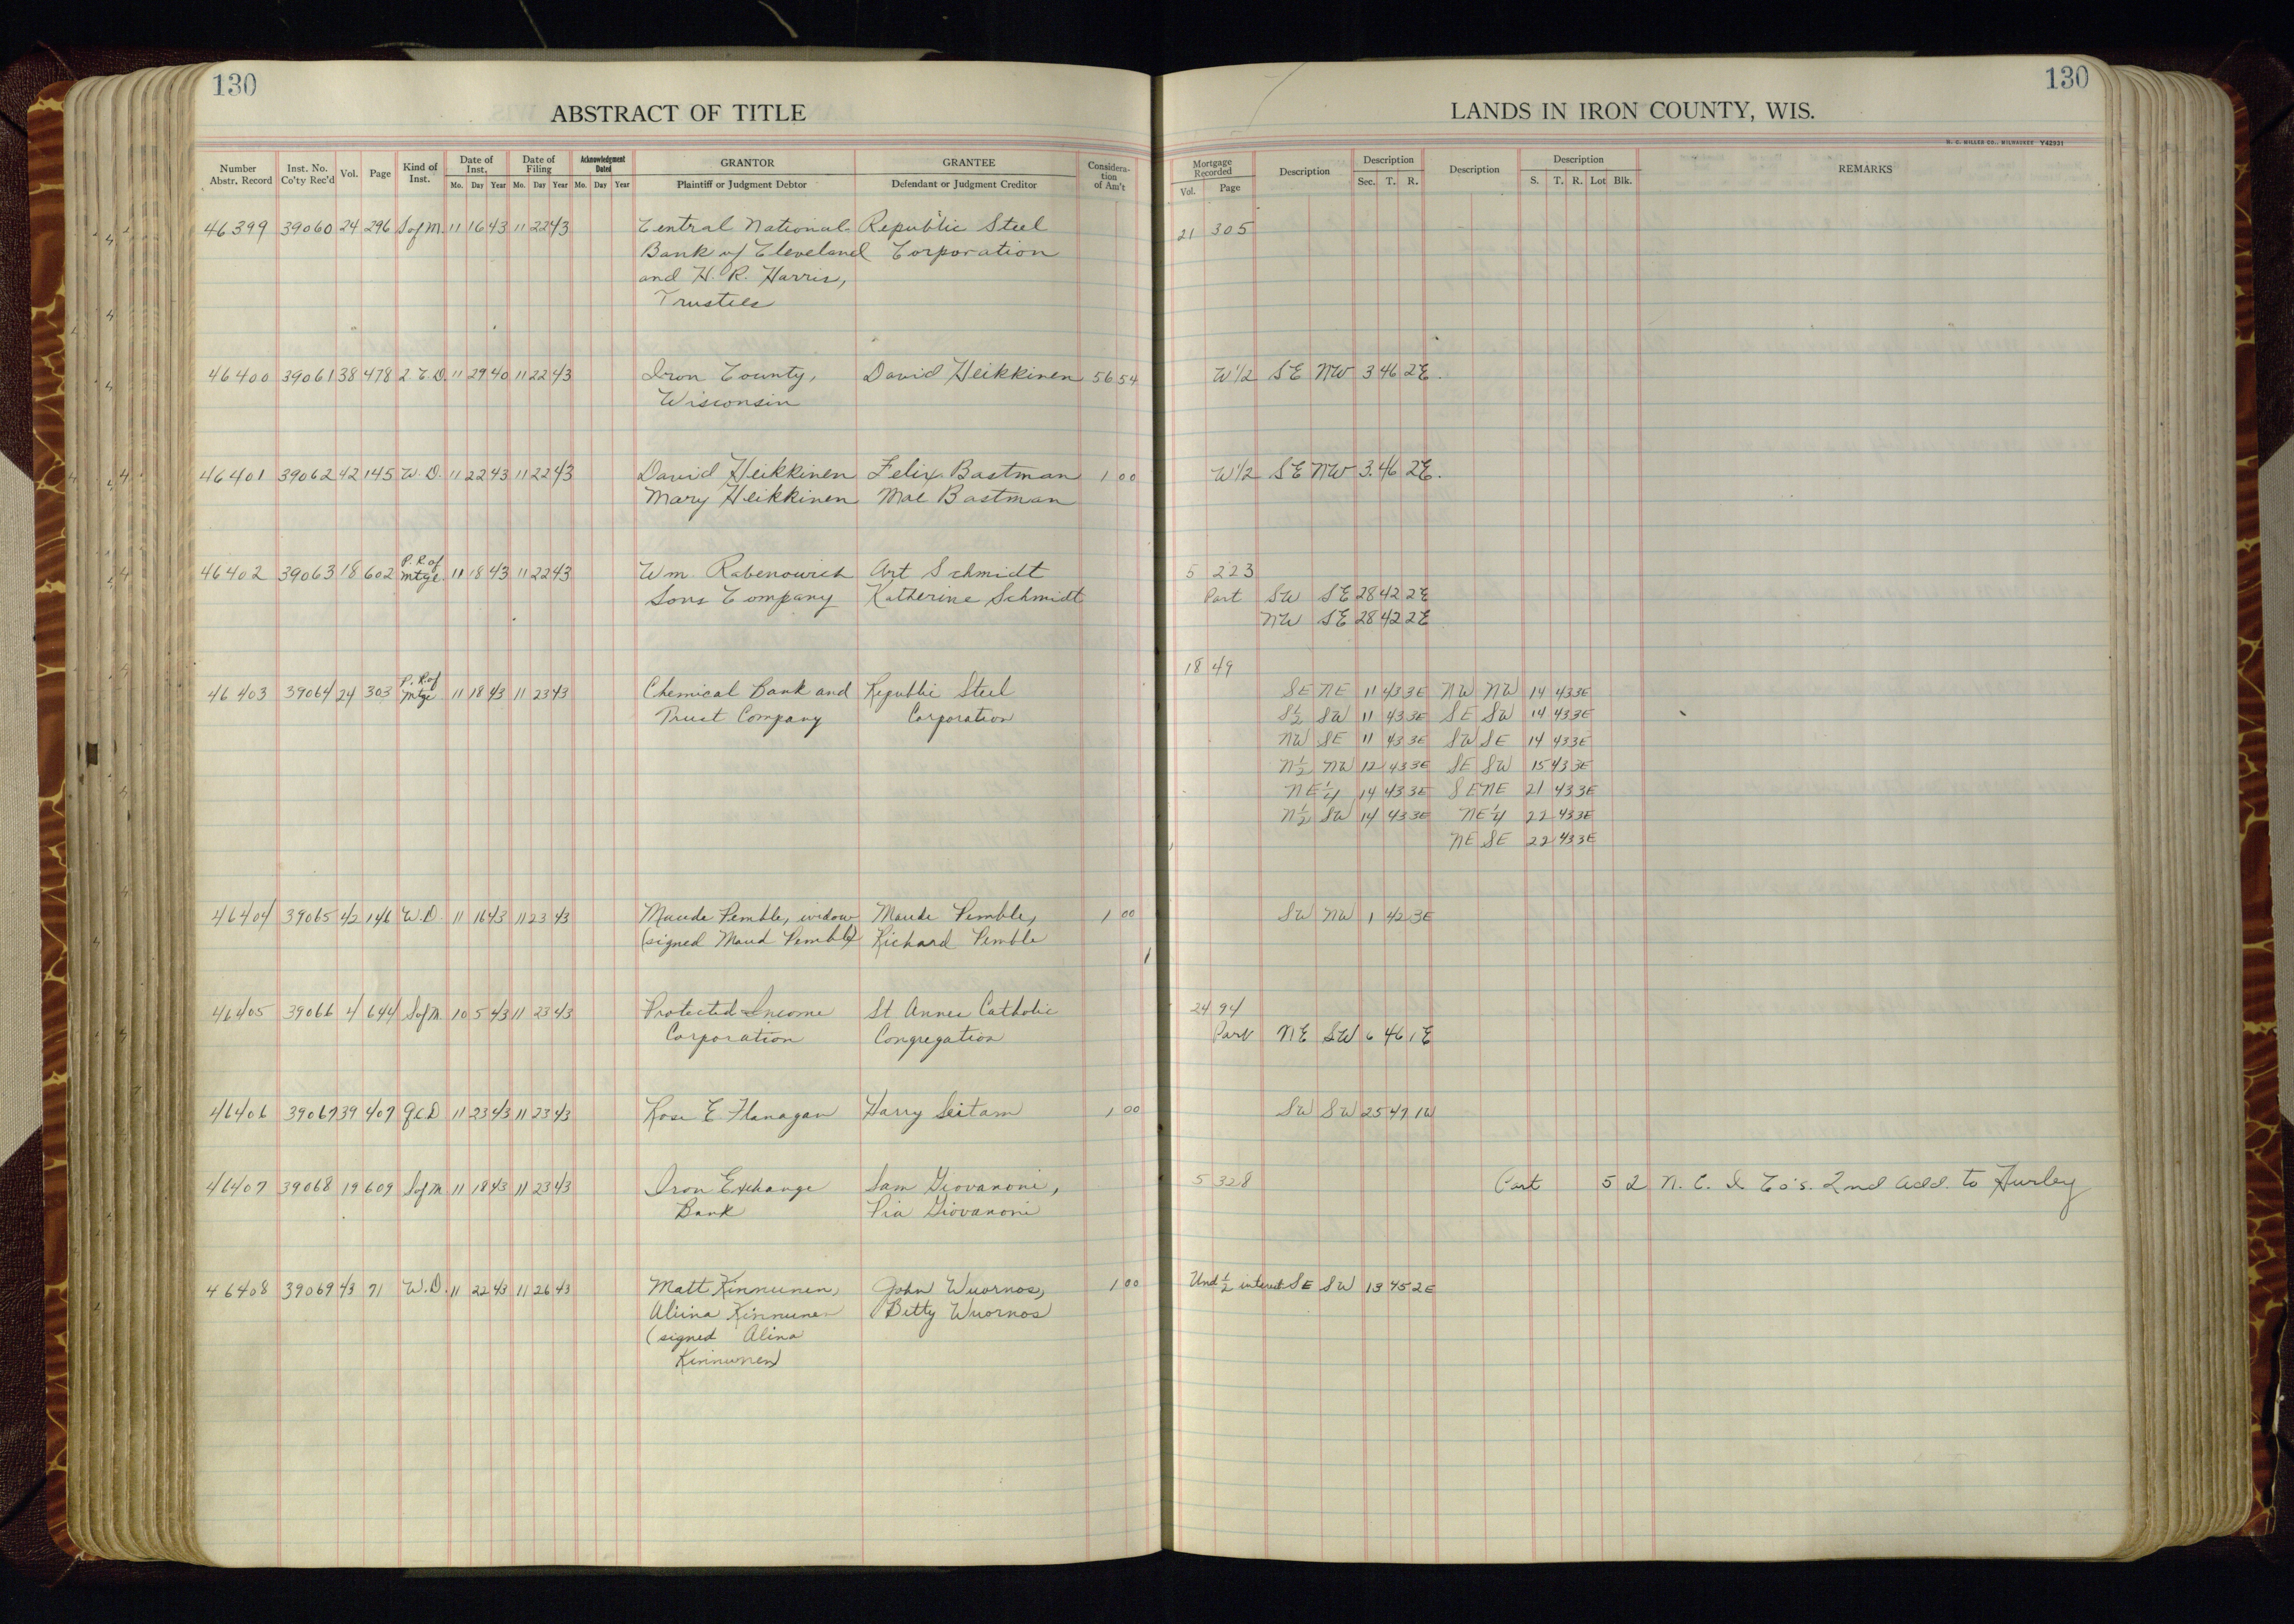 130
ABSTRACT OF TITLE
Number Abstr. Record Inst. No. Co'ty Rec'd Vol. Page Kind of Inst. Date of Inst. Mo. Day Year Date of Filing Mo. Day Year Acknowledgment Dated Mo. Day Year GRANTOR Plaintiff or Judgment Debtor GRANTEE Defendant or Judgment Creditor Considera-tion of Am't
46399 39060 24 296 S of M. 11 16 43 11 22 43 Central National Republic Steel
Bank of Cleveland Corporation
and H. R. Harris,
Trustees
46400 39061 38 478 2 C.D. 11 29 40 11 22 43 Iron County, David Heikkinen 56 54
Wisconsin
46401 39062 42 145 W. D. 11 22 43 11 22 43 David Heikkinen Felix Bastman 1 00
Mary Heikkinen Mae Bastman
46402 39063 18 602 P. R. of Mtge. 11 18 43 11 22 43 Wm. Rabenowich Art Schmidt
Sons Company Katherine Schmidt
46403 39064 24 303 P. R. of Mtge 11 18 43 11 23 43 Chemical Bank and Republic Steel
Trust Company Corporation
46404 39065 42 146 W. D. 11 16 43 11 23 43 Maude Pemble, widow Maude Pemble, 1 00
(signed Maud Pemble) Richard Pemble
46405 39066 4 644 S of M. 10 5 43 11 23 43 Protected Income St Annes Catholic
Corporation Congregation
46406 39067 39 407 Q.C.D 11 23 43 11 23 43 Rose E Flanagan Harry Seitam 1 00
46407 39068 19 609 S of M 11 18 43 11 23 43 Iron Exchange Sam Giovanoni,
Bank Pia Giovanoni
46408 39069 43 71 W. D. 11 22 43 11 26 43 Matt Kinnunen, John Wuornos, 1 00
Aliina Kinnunen Betty Wuornos
(signed Alina
Kinnunen)
130
LANDS IN IRON COUNTY, WIS.
H. C. MILLER CO., MILWAUKEE Y42931
Mortgage Recorded Vol. Page Description Description Sec. T. R. Description Description S. T. R. Lot Blk. REMARKS
21 305
W 1/2 SE NW 3 46 2E.
W 1/2 SE NW 3. 46 2E.
5 223
Part SW SE 28 42 2E
NW SE 28 42 2E
18 49
SE NE 11 43 3E NW NW 14 43 3E
S 1/2 SW 11 43 3E SE SW 14 43 3E
NW SE 11 43 3E SW SE 14 43 3E
N 1/2 NW 12 43 3E SE SW 15 43 3E
NE 1/4 14 43 3E SE NE 21 43 3E
N 1/2 SW 14 43 3E NE 1/4 22 43 3E
NE SE 22 43 3E
SW NW 1 42 3E
24 94
Part NE SW 6 46 1E
SW SW 25 47 1W
5 328 Part 5 2 N. C. I Co's. 2nd Add. to Hurley
Und 1/2 interest SE SW 13 45 2E